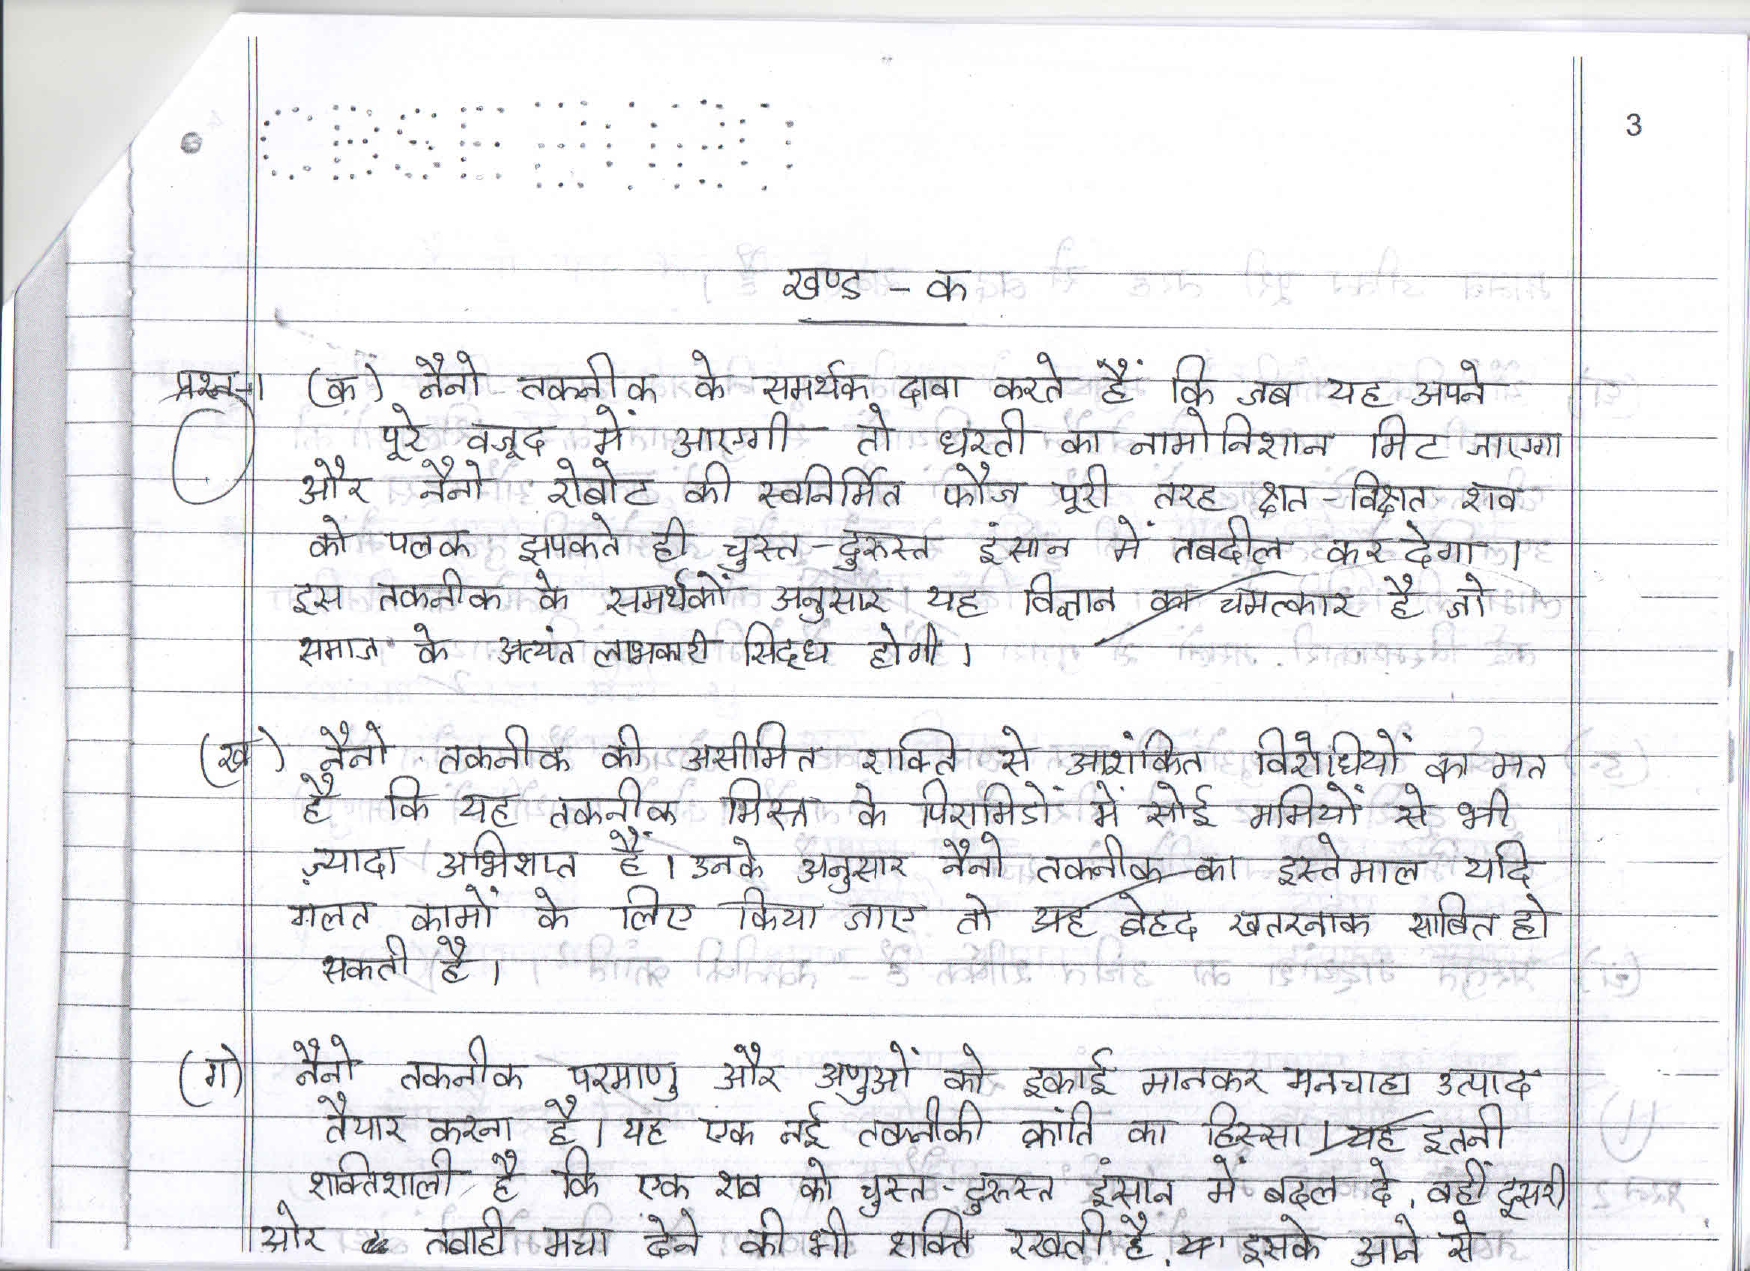 CBSE
3
खण्ड - क
प्रश्न-1 (क) नैनो तकनीक के समर्थक दावा करते हैं कि जब यह अपने
पूरे वजूद में आएगी तो धरती का नामोनिशान मिट जाएगा
और नैनो रोबोट की स्वनिर्मित फौज पूरी तरह क्षत-विक्षत शव
को पलक झपकते ही चुस्त-दुरूस्त इंसान में तबदील कर देगा।
इस तकनीक के समर्थकों अनुसार यह विज्ञान का चमत्कार है जो
समाज के अत्यंत लाभकारी सिद्ध होगी।
(ख) नैनो तकनीक की असीमित शक्ति से आशंकित विरोधियों का मत
है कि यह तकनीक मिस्त्र के पिरामिडों में सोई ममियों से भी
ज़्यादा अभिशप्त हैं। उनके अनुसार नैनो तकनीक का इस्तेमाल यदि
गलत कामों के लिए किया जाए तो यह बेहद खतरनाक साबित हो
सकती है।
(ग) नैनो तकनीक परमाणु और अणुओं को इकाई मानकर मनचाहा उत्पाद
तैयार करना है। यह एक नई तकनीकी क्रांति का हिस्सा। यह इतनी
शक्तिशाली है कि एक शव को चुस्त-दुरूस्त इंसान में बदल दे, वहीं दूसरी
ओर तबाही मचा देने की भी शक्ति रखती है, इसके आने से